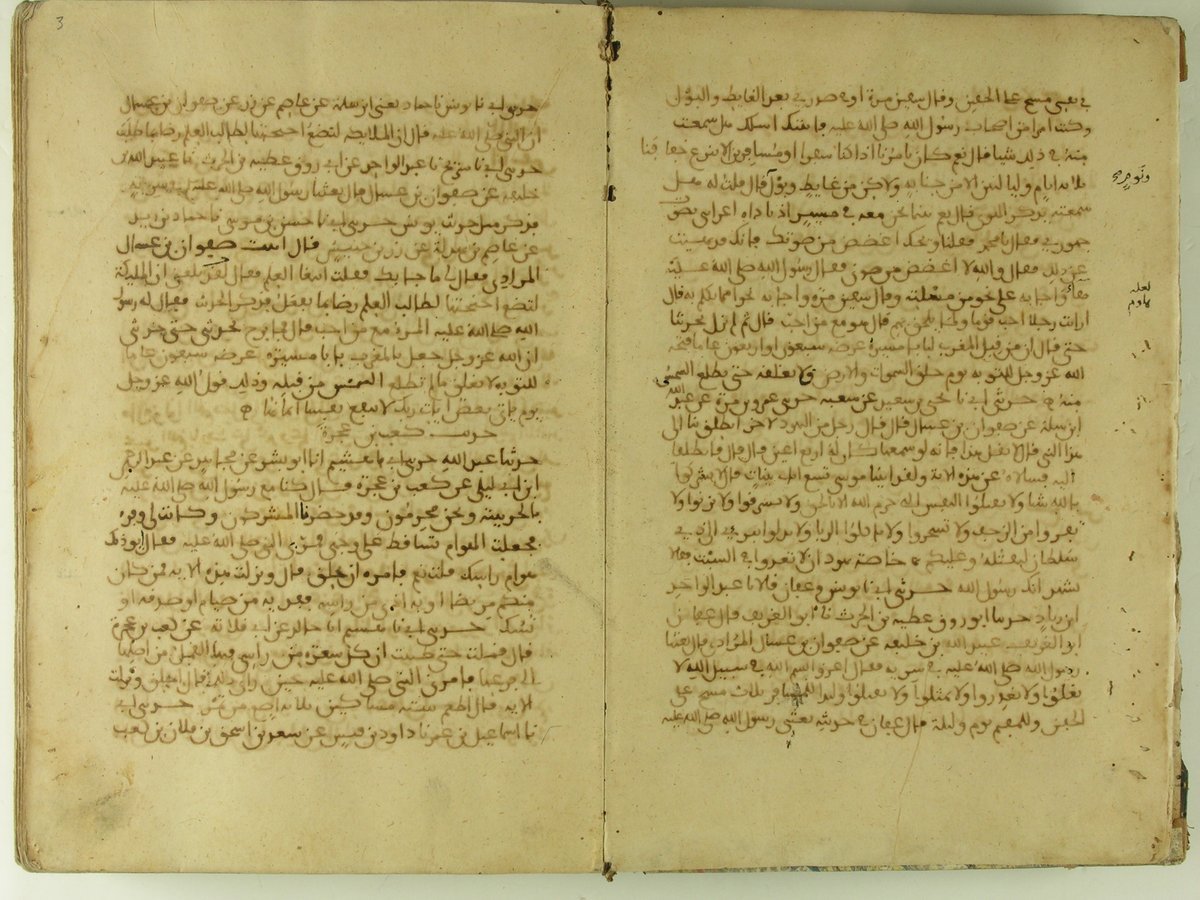 في نفسي مسح على الخفين وقال سفين مرة او في صدري بعد الغايط والبول
وكنت امرا من اصحاب رسول الله صلى الله عليه فاتيتك اسلك هل سمعت
منه في ذلك شيا قال نعم كان يامرنا اذا كنا سفرا او مسافرين الا ننزع خفافنا
ثلاثة ايام ولياليهن الا من جنابة ولاكن من غايط وبول قال قلت له هل
سمعته يذكر الهوى قال نعم بينا نحن معه في مسير اذ ناداه اعرابي بصوت
جهوري فقال يا محمد فقلنا ويحك اغضض من صوتك فانك قد نهيت
عن ذلك فقال والله لا اغضض من صوتي فقال رسول الله صلى الله عليه
هاؤ واجابه على نحو من مسلته وقال سفين مرة واجابه نحوا مما تكلم به قال
ارايت رجلا احب قوما ولما يلحق بهم قال هو مع من احب قال ثم لم يزل يحدثنا
حتى قال ان من قبل المغرب لبابا مسيرة عرضه سبعون او اربعون عاما فتحه
الله عز وجل للتوبة يوم خلق السموات والارض ولا يغلقه حتى تطلع الشمس
منه حدثني ابي نا يحيى بن سعيد عن شعبة حدثني عمرو بن مرة عن عبد الله
ابن سلمة عن صفوان بن عسال قال قال رجل من اليهود لاخر انطلق بنا الى
هذا النبي قال لا تقل هذا فانه لو سمعها كان له اربع اعين قال قال فانطلقا
اليه فسالاه عن هذه الاية ولقد اتينا موسى تسع ايات بينات قال لا تشركوا
بالله شيا ولا تقتلوا النفس التي حرم الله الا بالحق ولا تسرقوا ولا تزنوا ولا
تفروا من الزحف ولا تسحروا ولا تاكلوا الربا ولا تدلوا ببري الى ذي
سلطان ليقتله وعليكم خاصة يهود ان لا تعدوا في السبت فقالا
نشهد انك رسول الله حدثني ابي نا يونس وعفان قالا نا عبد الواحد
ابن زياد حدثنا ابو روق عطية بن الحرث نا ابو الغريف قال عفان
ابو الغريف عبيد الله بن خليفة عن صفوان بن عسال المرادي قال بعثنا
رسول الله صلى الله عليه في سرية فقال اغزوا بسم الله في سبيل الله لا
تغلوا ولا تغدروا ولا تمثلوا ولا تقتلوا وليدا للمسافر ثلاث مسح على
الخفين وللمقيم يوم وليلة قال عفان في حديثه بعثني رسول الله صلى الله عليه
لعله
هاوم
3
حدثني ابي نا يونس نا حماد يعني ابن سلمة عن عاصم عن زر عن صفوان بن عسال
ان النبي صلى الله عليه قال ان الملايكة لتضع اجنحتها لطالب العلم رضا بما طلب
حدثني ابي نا سريج نا عبد الواحد عن ابي روق عطية بن الحرث نا عبيد الله بن
خليفة عن صفوان بن عسال قال بعثنا رسول الله صلى الله عليه في سرية
فذكر مثل حديث يونس حدثني ابي نا حسن بن موسى نا حماد بن زيد
عن عاصم بن بهدلة عن زر بن حبيش قال اتيت صفوان بن عسال
المرادي فقال ما جا بك فقلت ابتغا العلم فقال لقد بلغني ان الملايكة
لتضع اجنحتها لطالب العلم رضا بما يفعل فذكر الحديث فقال له رسول
الله صلى الله عليه المرء مع من احب قال فما برح يحدثني حتى حدثني
ان الله عز وجل جعل بالمغرب بابا مسيرة عرضه سبعون عاما
للتوبة لا يغلق ما لم تطلع الشمس من قبله وذلك قول الله عز وجل
يوم ياتي بعض ايات ربك لا ينفع نفسا ايمانها
حديث كعب بن عجرة
حدثنا عبد الله حدثني ابي نا هشيم انا ابو بشر عن مجاهد عن عبد الرحمن
ابن ابي ليلى عن كعب بن عجرة قال كنا مع رسول الله صلى الله عليه
بالحديبية ونحن محرمون وقد حصرنا المشركون وكانت لي وفرة
فجعلت الهوام تساقط على وجهي فمر بي النبي صلى الله عليه فقال ايوذيك
هوام راسك قلت نعم فامره ان يحلق قال ونزلت هذه الاية فمن كان
منكم مريضا او به اذى من راسه ففدية من صيام او صدقة او
نسك حدثني ابي نا هشيم انا خالد عن ابي قلابة عن كعب بن عجرة
قال قملت حتى ظننت ان كل شعرة من راسي فيها القمل من اصلها
الى فرعها فامرني النبي صلى الله عليه حين راى ذلك قال احلق ونزلت
الاية قال اطعم ستة مساكين ثلاثة اصع من تمر حدثني ابي
نا اسماعيل بن عمر نا داود بن قيس عن سعد بن اسحق بن فلان بن كعب